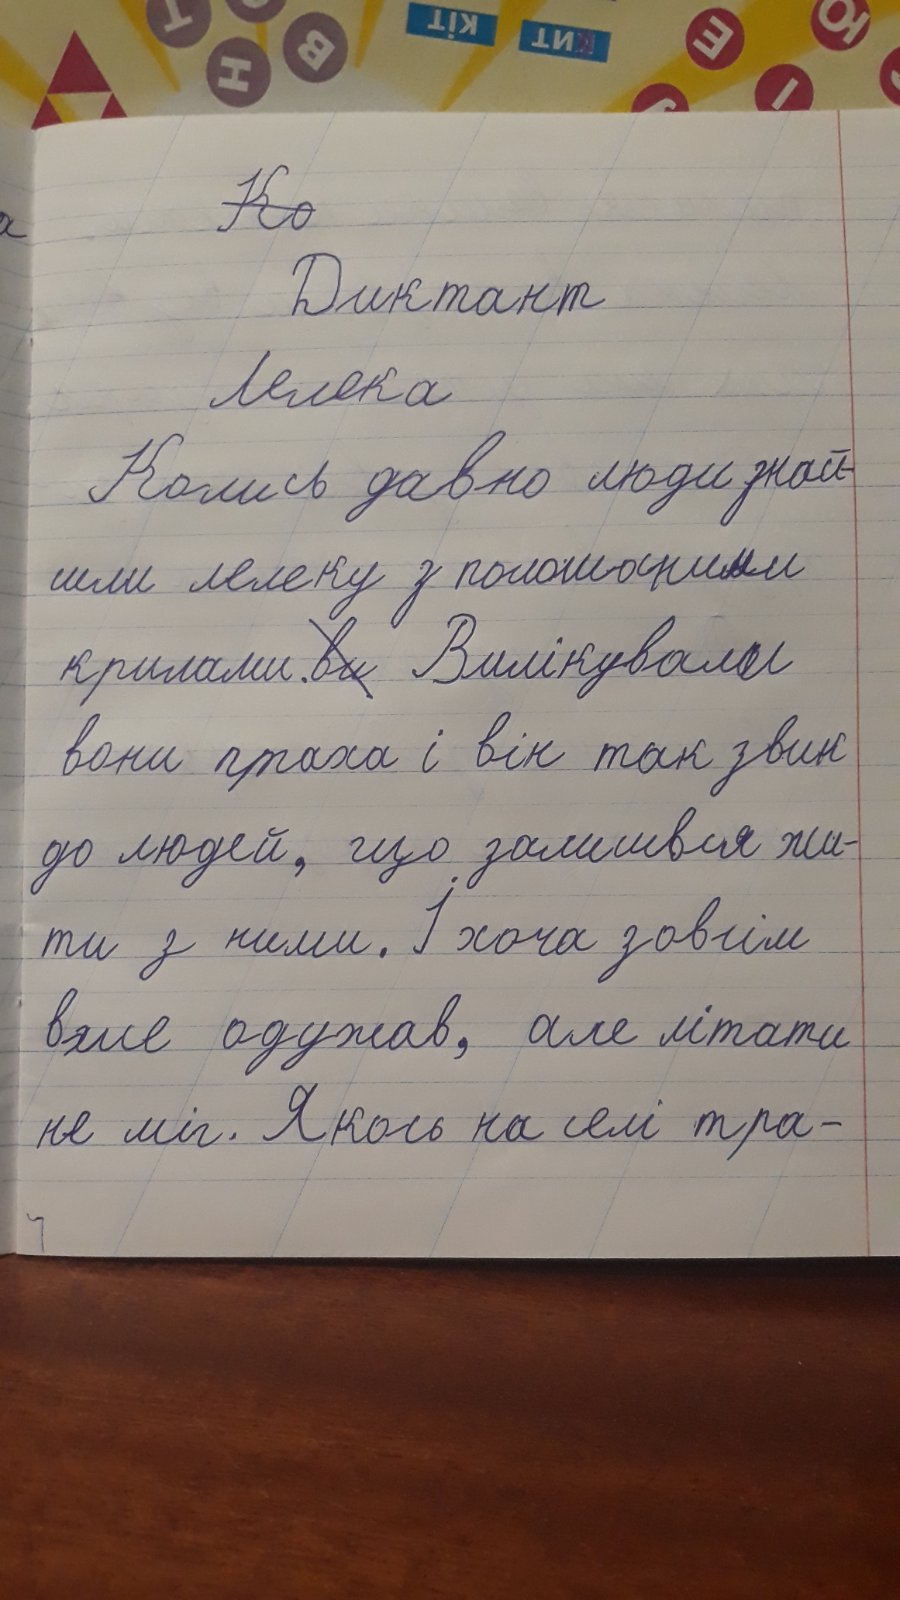 Т
Н
В
КІТ
КИТ
Е
Ю
І
а
Ко
Диктант
Лелека
Колись давно люди знай-
шли лелеку з поломаними
крилами. ви Вилікували
вони птаха і він так звик
до людей, що залишвся жи-
ти з ними. І хоча зовсім
вже одужав, але літати
не міг. Якось на селі тра-